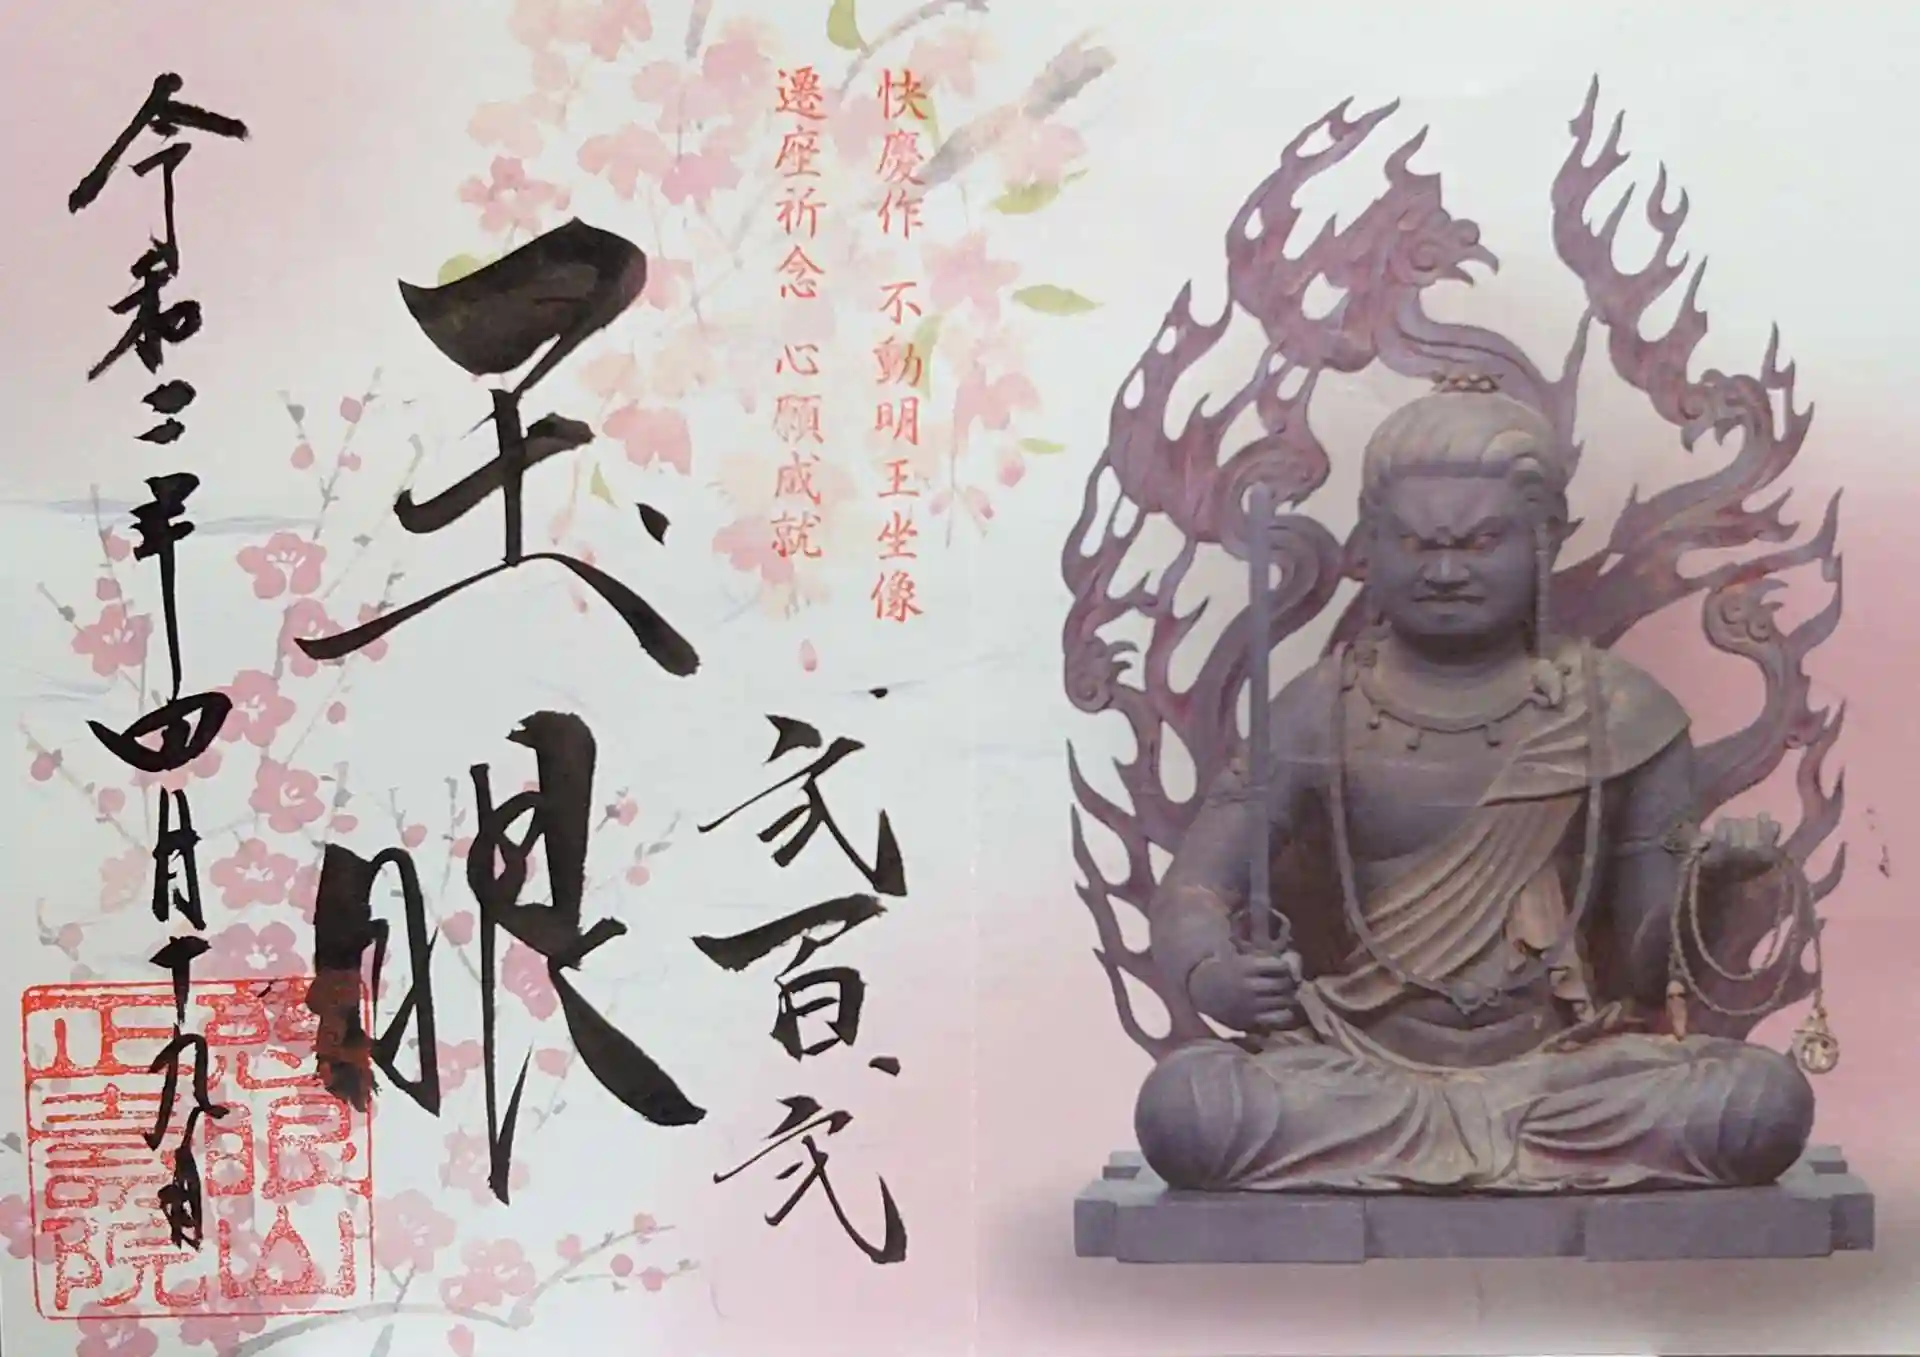 快慶作 不動明王坐像
遷座祈念 心願成就
弐百、弐
玉眼
令和二年四月十九日
慈眼山
正寿院